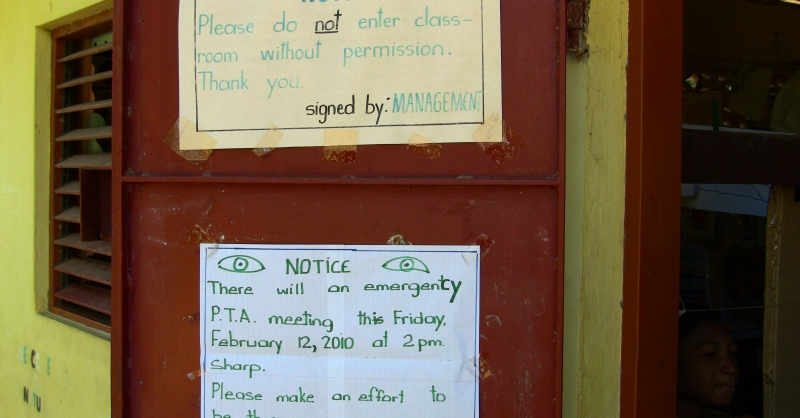 Please do not enter class-
room without permission.
Thank you.
signed by: MANAGEMENT
NOTICE
There will an emergency
P.T.A. meeting this Friday,
February 12, 2010 at 2pm.
Sharp.
Please make an effort to
be